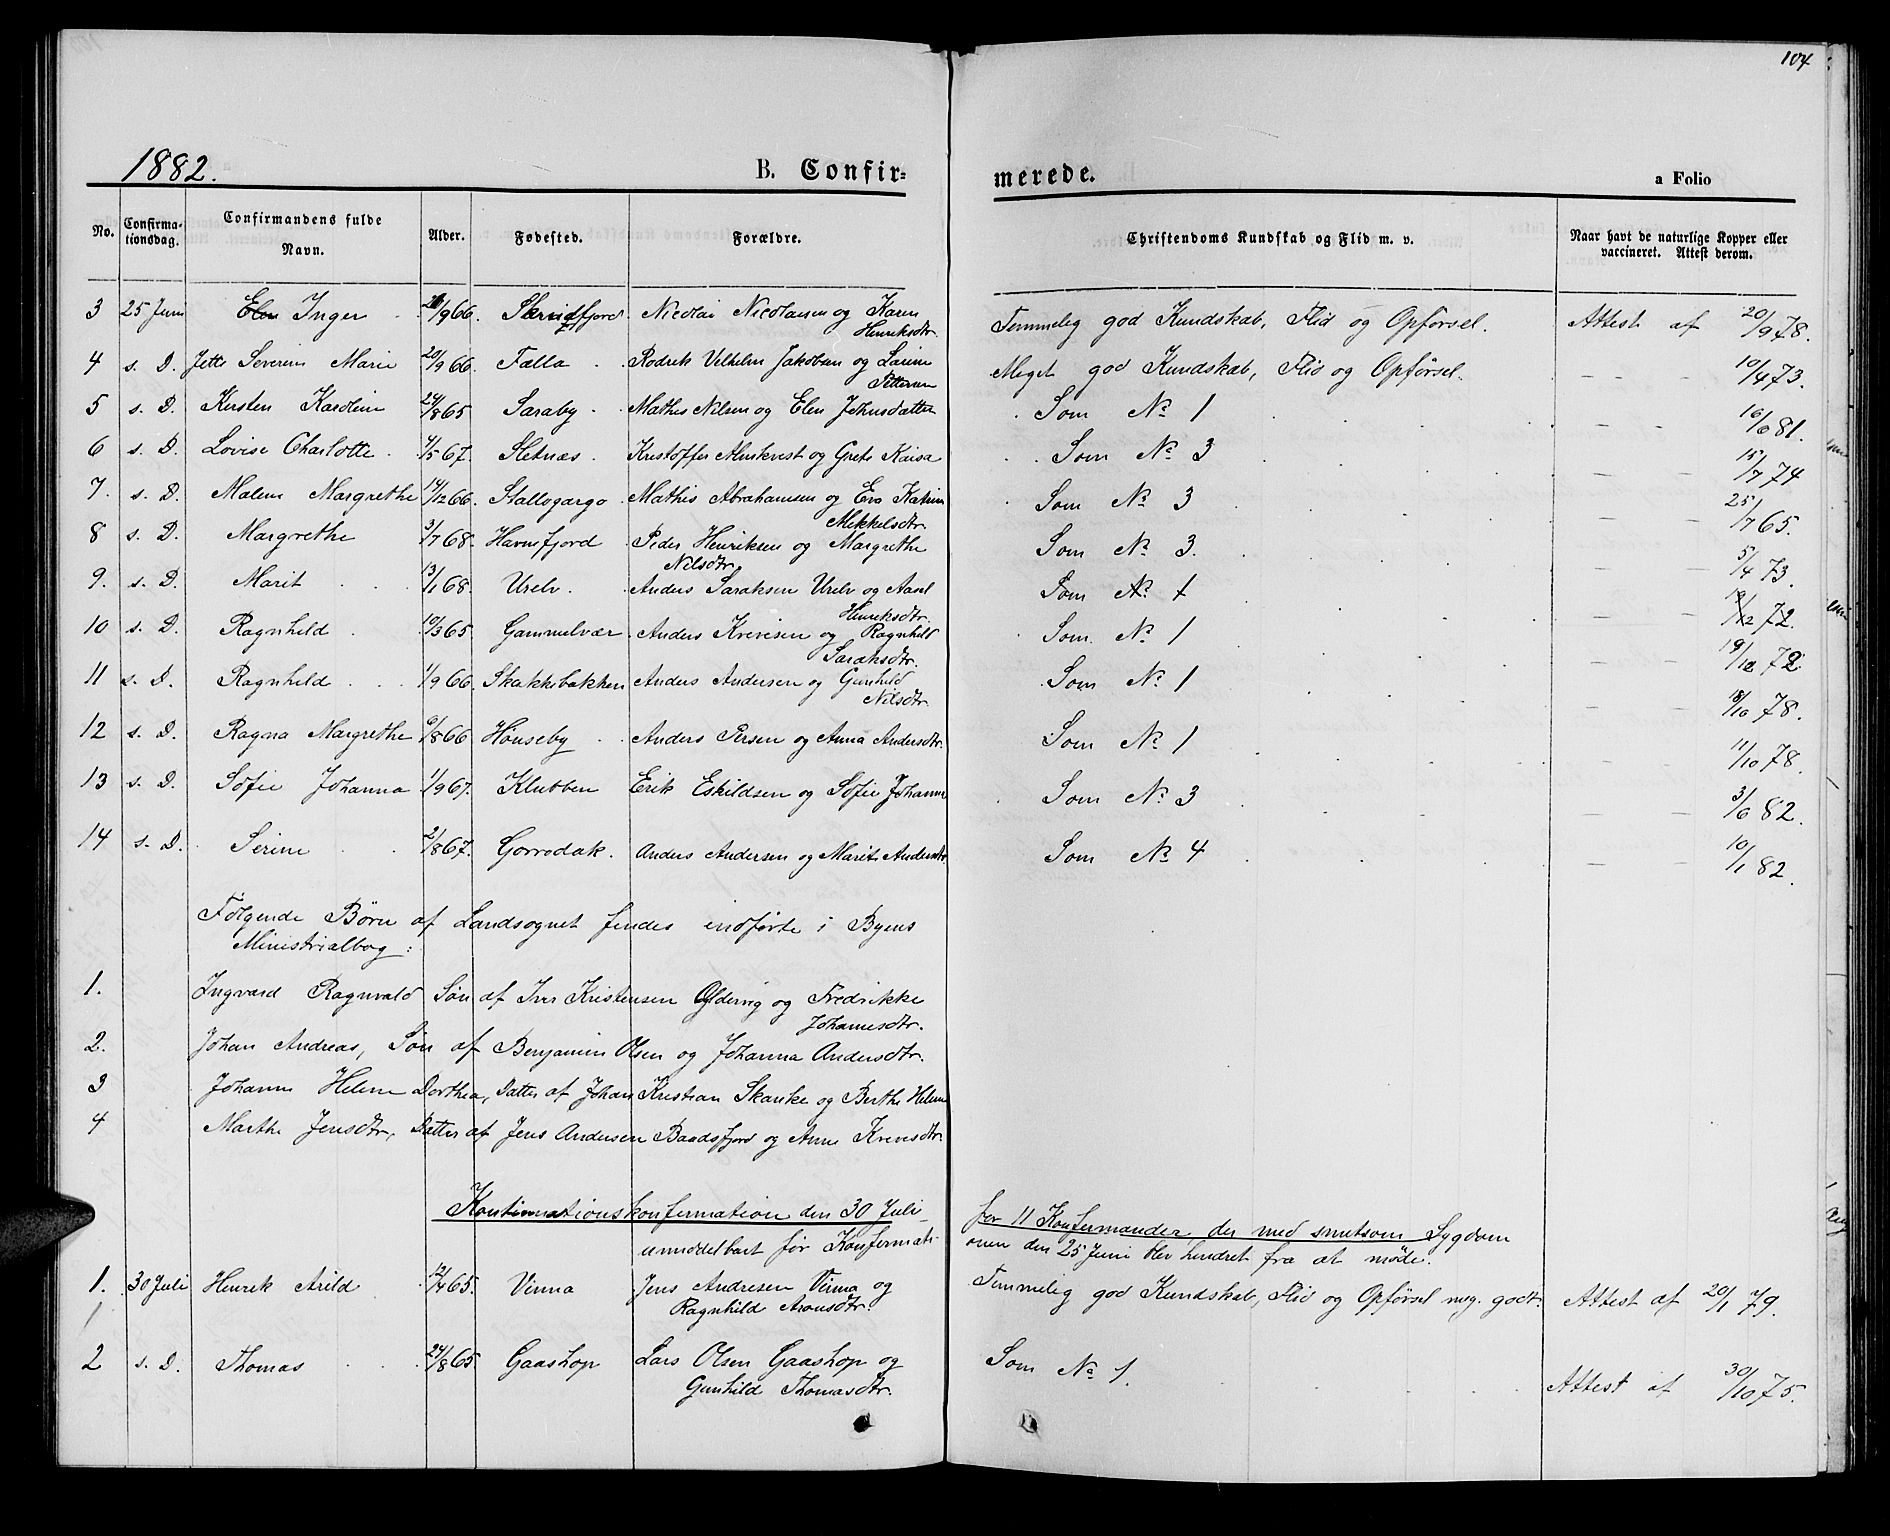 104
1882.
B. Confir=
merede.
a Folio
No.
Confirma-
tionsdag.
Confirmandens fulde
Navn.
Alder.
Fødested.
Forældre.
Christendoms Kundskab og Flid m. v.
Naar havt de naturlige Kopper eller
vaccineret. Attest derom.
3 25 Juni Elen Inger /9 66. Nicolai Nicolaisen og Karen Temmelig god Kundskab, Flid og Opførsel. Attest af 20/9 78.
Henriksdtr.
4 s. D. Jette Severine Marie 20/9 66 Falla Rodrik Vilhelm Jakobsen og Larine Meget god Kundskab, Flid og Opførsel. — — 10/4 73.
Pettersen
5 s. D. Kirsten Karoline 24/8 65 Saraby Mathis Nilsen og Elen Johnsdatter Som No 1 — — 16/6 81.
6 s. D. Lovise Charlotte 4/5 67. Sletnæs Kristoffer og Grete Kaisa Som No 3 — — 15/7 74
7. s. D. Malene Margrethe 14/12 66. Stallogargo Mathis Abrahamsen og Eva Katrine Som No 3 — — 25/7 65.
Mikkelsdtr.
8 s. D. Margrethe 3/7 68. Havnefjord Peder Henriksen og Margrethe Som No 3. — — 5/4 73.
Nilsdtr.
9. s. D. Marit 13/1 68. Urelv. Anders Saraksen Urelv og Aasel Som No 1 — — /12 72.
Henriksdtr.
10 s. D. Ragnhild 10/3 65. Gammelvær Anders Krevesen og Ragnhild Som No 1 — — 19/12 72
Saraksdtr.
11 s. D. Ragnhild 1/9 66. Skakkebakken Anders Andersen og Gunhild Som No 1 — — 18/10 78.
Nilsdtr.
12 s. D. Ragna Margrethe 6/8 66 Hønseby Anders Persen og Anna Andersdtr. Som No 1 — — 11/10 78.
13 s. D. Sofie Johanna 1/9 67. Klubben Erik Eskildsen og Sofie Johanne Som No 3 — — 3/6 82.
14 s. D. Serine 2/8 67. Gorredak. Anders Andersen og Marit Andersdtr. Som No 4 — — 10/1 82.
Følgende Børn af Landsognet findes indførte i Byens
Ministrialbog:
1. Ingvard Ragnvald Søn af Iver Kristensen Oldervig og Fredrikke
Johannesdtr.
2. Johan Andreas, Søn af Benjamin Olsen og Johanna Andersdtr.
3 Johanne Helene Dorthea, Datter af Johan Kristian Skanke og Berthe Helene
4 Marthe Jensdtr, Datter af Jens Andersen Baadsfjord og Anne Krevesdtr.
Kontinuationskonfirmation den 30 Juli
for 11 Konfirmander, der med smitsom Sygdom
umiddelbart før Konfirmati-
onen den 25 Juni blev hindret fra at møde.
1. 30 Juli Henrik Arild 12/4 65. Virma Jens Andresen Virma og Temmelig god Kundskab, Flid og Opførsel meg. godt. Attest af 20/1 79.
Ragnhild Aronsdtr.
2 s. D. Thomas 24/8 65 Gaashop Lars Olsen Gaashop og Som No 1. Attest af 30/10 75.
Gunhild Thomasdtr.